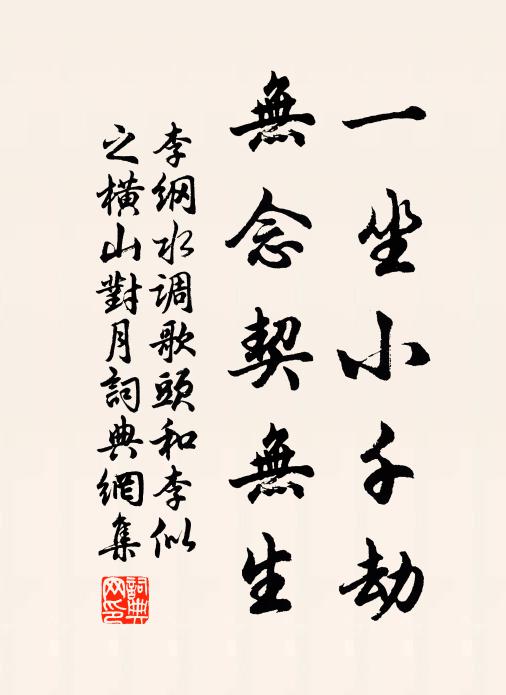 一坐小千劫
無念契無生
李纲水调歌頭和李似
之横山對月詞典網集
詞典網印